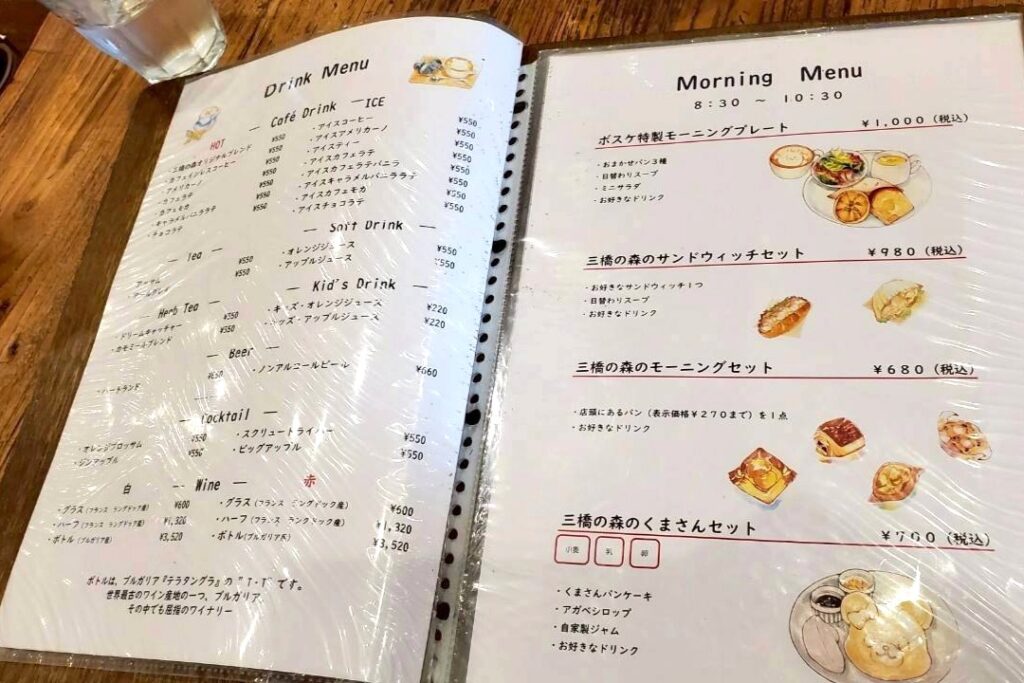 Drink Menu
Café Drink
HOT
・三橋の森オリジナルブレンド ¥550
・カフェインレスコーヒー ¥550
・アメリカーノ ¥550
・カフェラテ ¥550
・カフェモカ ¥550
・キャラメルバニララテ ¥550
・チョコラテ
ICE
・アイスコーヒー ¥550
・アイスアメリカーノ ¥550
・アイスティー ¥550
・アイスカフェラテ ¥550
・アイスカフェラテバニラ ¥550
・アイスキャラメルバニララテ ¥550
・アイスカフェモカ ¥550
・アイスチョコラテ ¥550
Tea
アッサム ¥550
アールグレイ ¥550
Soft Drink
・オレンジジュース ¥550
・アップルジュース ¥550
Herb Tea
・ドリームキャッチャー ¥550
・カモミールブレンド ¥550
Kid's Drink
・キッズ・オレンジジュース ¥220
キッズ・アップルジュース ¥220
Beer
・ハートランド ¥650
・ノンアルコールビール ¥660
Cocktail
・オレンジブロッサム ¥550
・ジンアップル ¥550
・スクリュードライバー ¥550
・ビッグアップル ¥550
Wine
白
・グラス(フランス ラングドック産) ¥600
・ハーフ(フランス ラングドック産) ¥1,320
・ボトル(ブルガリア産) ¥3,520
赤
・グラス(フランス ラングドック産) ¥600
・ハーフ(フランス ラングドック産) ¥1,320
・ボトル(ブルガリア産) ¥3,520
ボトルは、ブルガリア『テラタングラ』の "T・T" です。
世界最古のワイン産地の一つ、ブルガリア
その中でも屈指のワイナリー
Morning Menu
8:30 ～ 10:30
ボスケ特製モーニングプレート ¥1,000(税込)
・おまかせパン3種
・日替わりスープ
・ミニサラダ
・お好きなドリンク
三橋の森のサンドウィッチセット ¥980(税込)
・お好きなサンドウィッチ1つ
・日替わりスープ
・お好きなドリンク
三橋の森のモーニングセット ¥680(税込)
・店頭にあるパン(表示価格¥270まで)を1点
・お好きなドリンク
三橋の森のくまさんセット ¥700(税込)
小麦 乳 卵
・くまさんパンケーキ
・アガベシロップ
・自家製ジャム
・お好きなドリンク